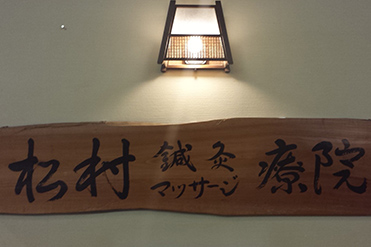 松村 鍼灸マッサージ 療院